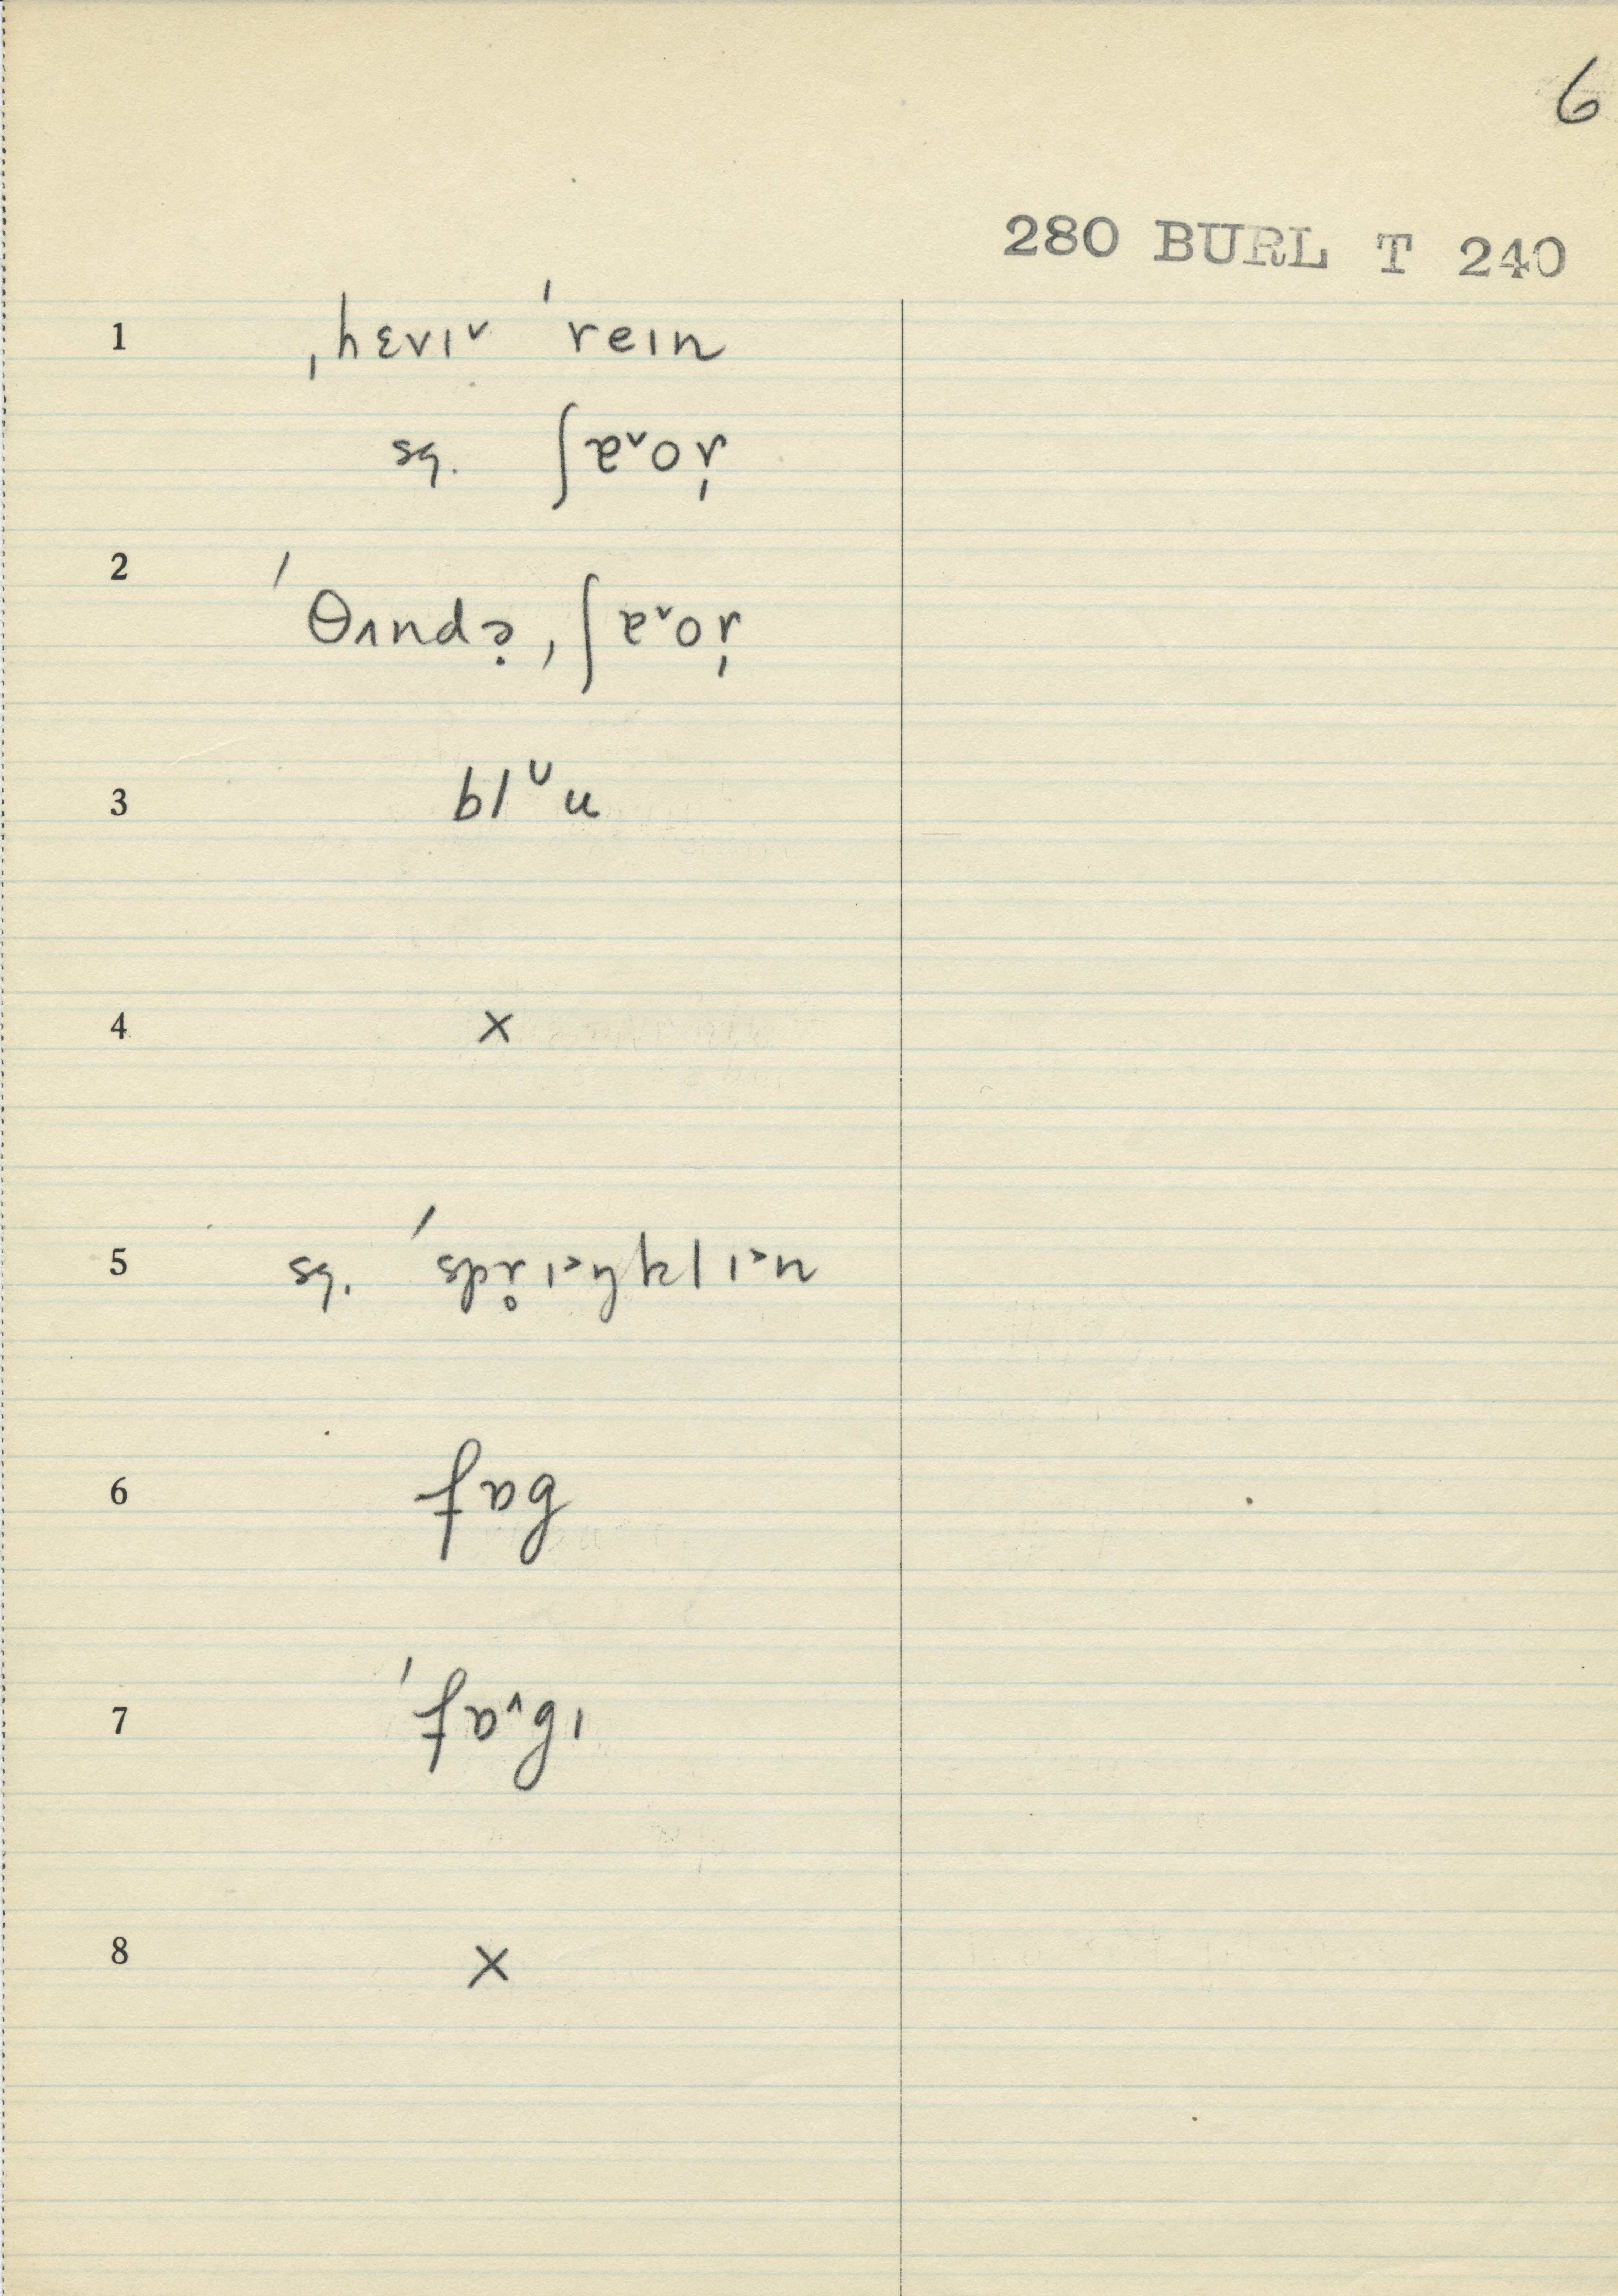 6
280 BURL T 240
1 ˌhɛvɪ˅ ˈrein
sg. ʃɐ˅oɾ
2 ˈθʌndə̣ ˌʃɐ˅oɾ
3 blᵁu
4 x
5 sg. ˈspr̥ɪ˃ŋklɪ˃n
6 fɒg
7 ˈfɒ˅gɪ
8 x